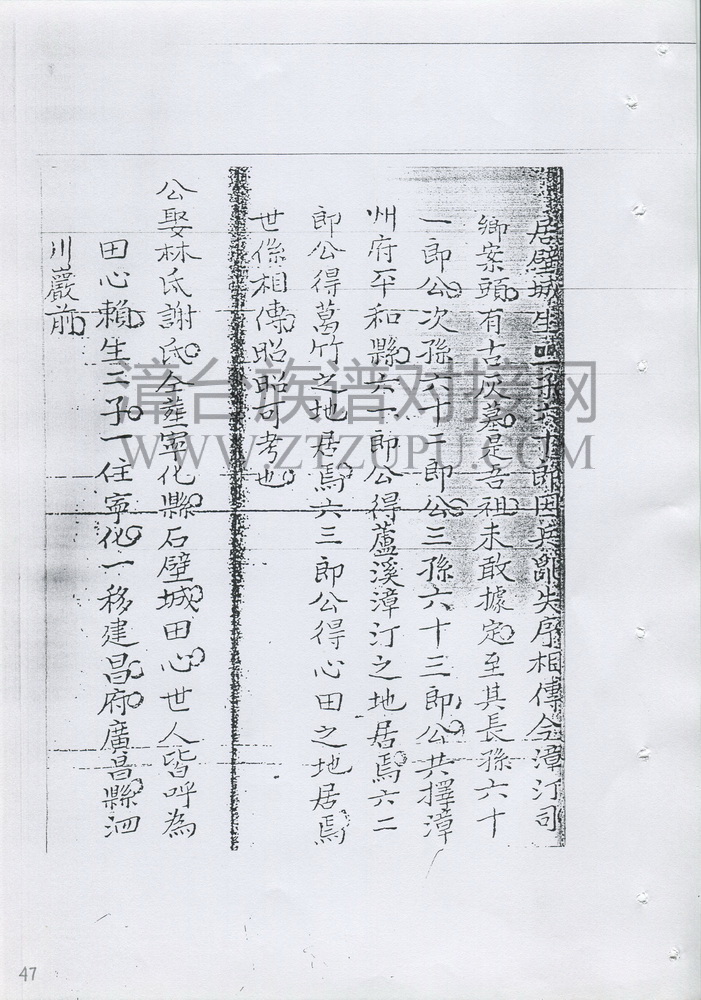 居壁城生四子六十郎因兵部失序相傳今漳汀司
鄉案頭有古灰墓是吾祖未敢據定至其長孫六十
一郎公次孫六十二郎公三孫六十三郎公共擇漳
州府平和縣六一郎公得蘆溪漳汀之地居焉六二
郎公得葛竹之地居焉六三郎公得心田之地居焉
世係相傳昭昭可考也
公娶林氏謝氏仝葬寧化縣石壁城田心世人皆呼為
田心賴生二子一住寧化一移建昌府廣昌縣泗
川巖前
漳台族谱对接网
WWW.ZTZUPU.COM
47